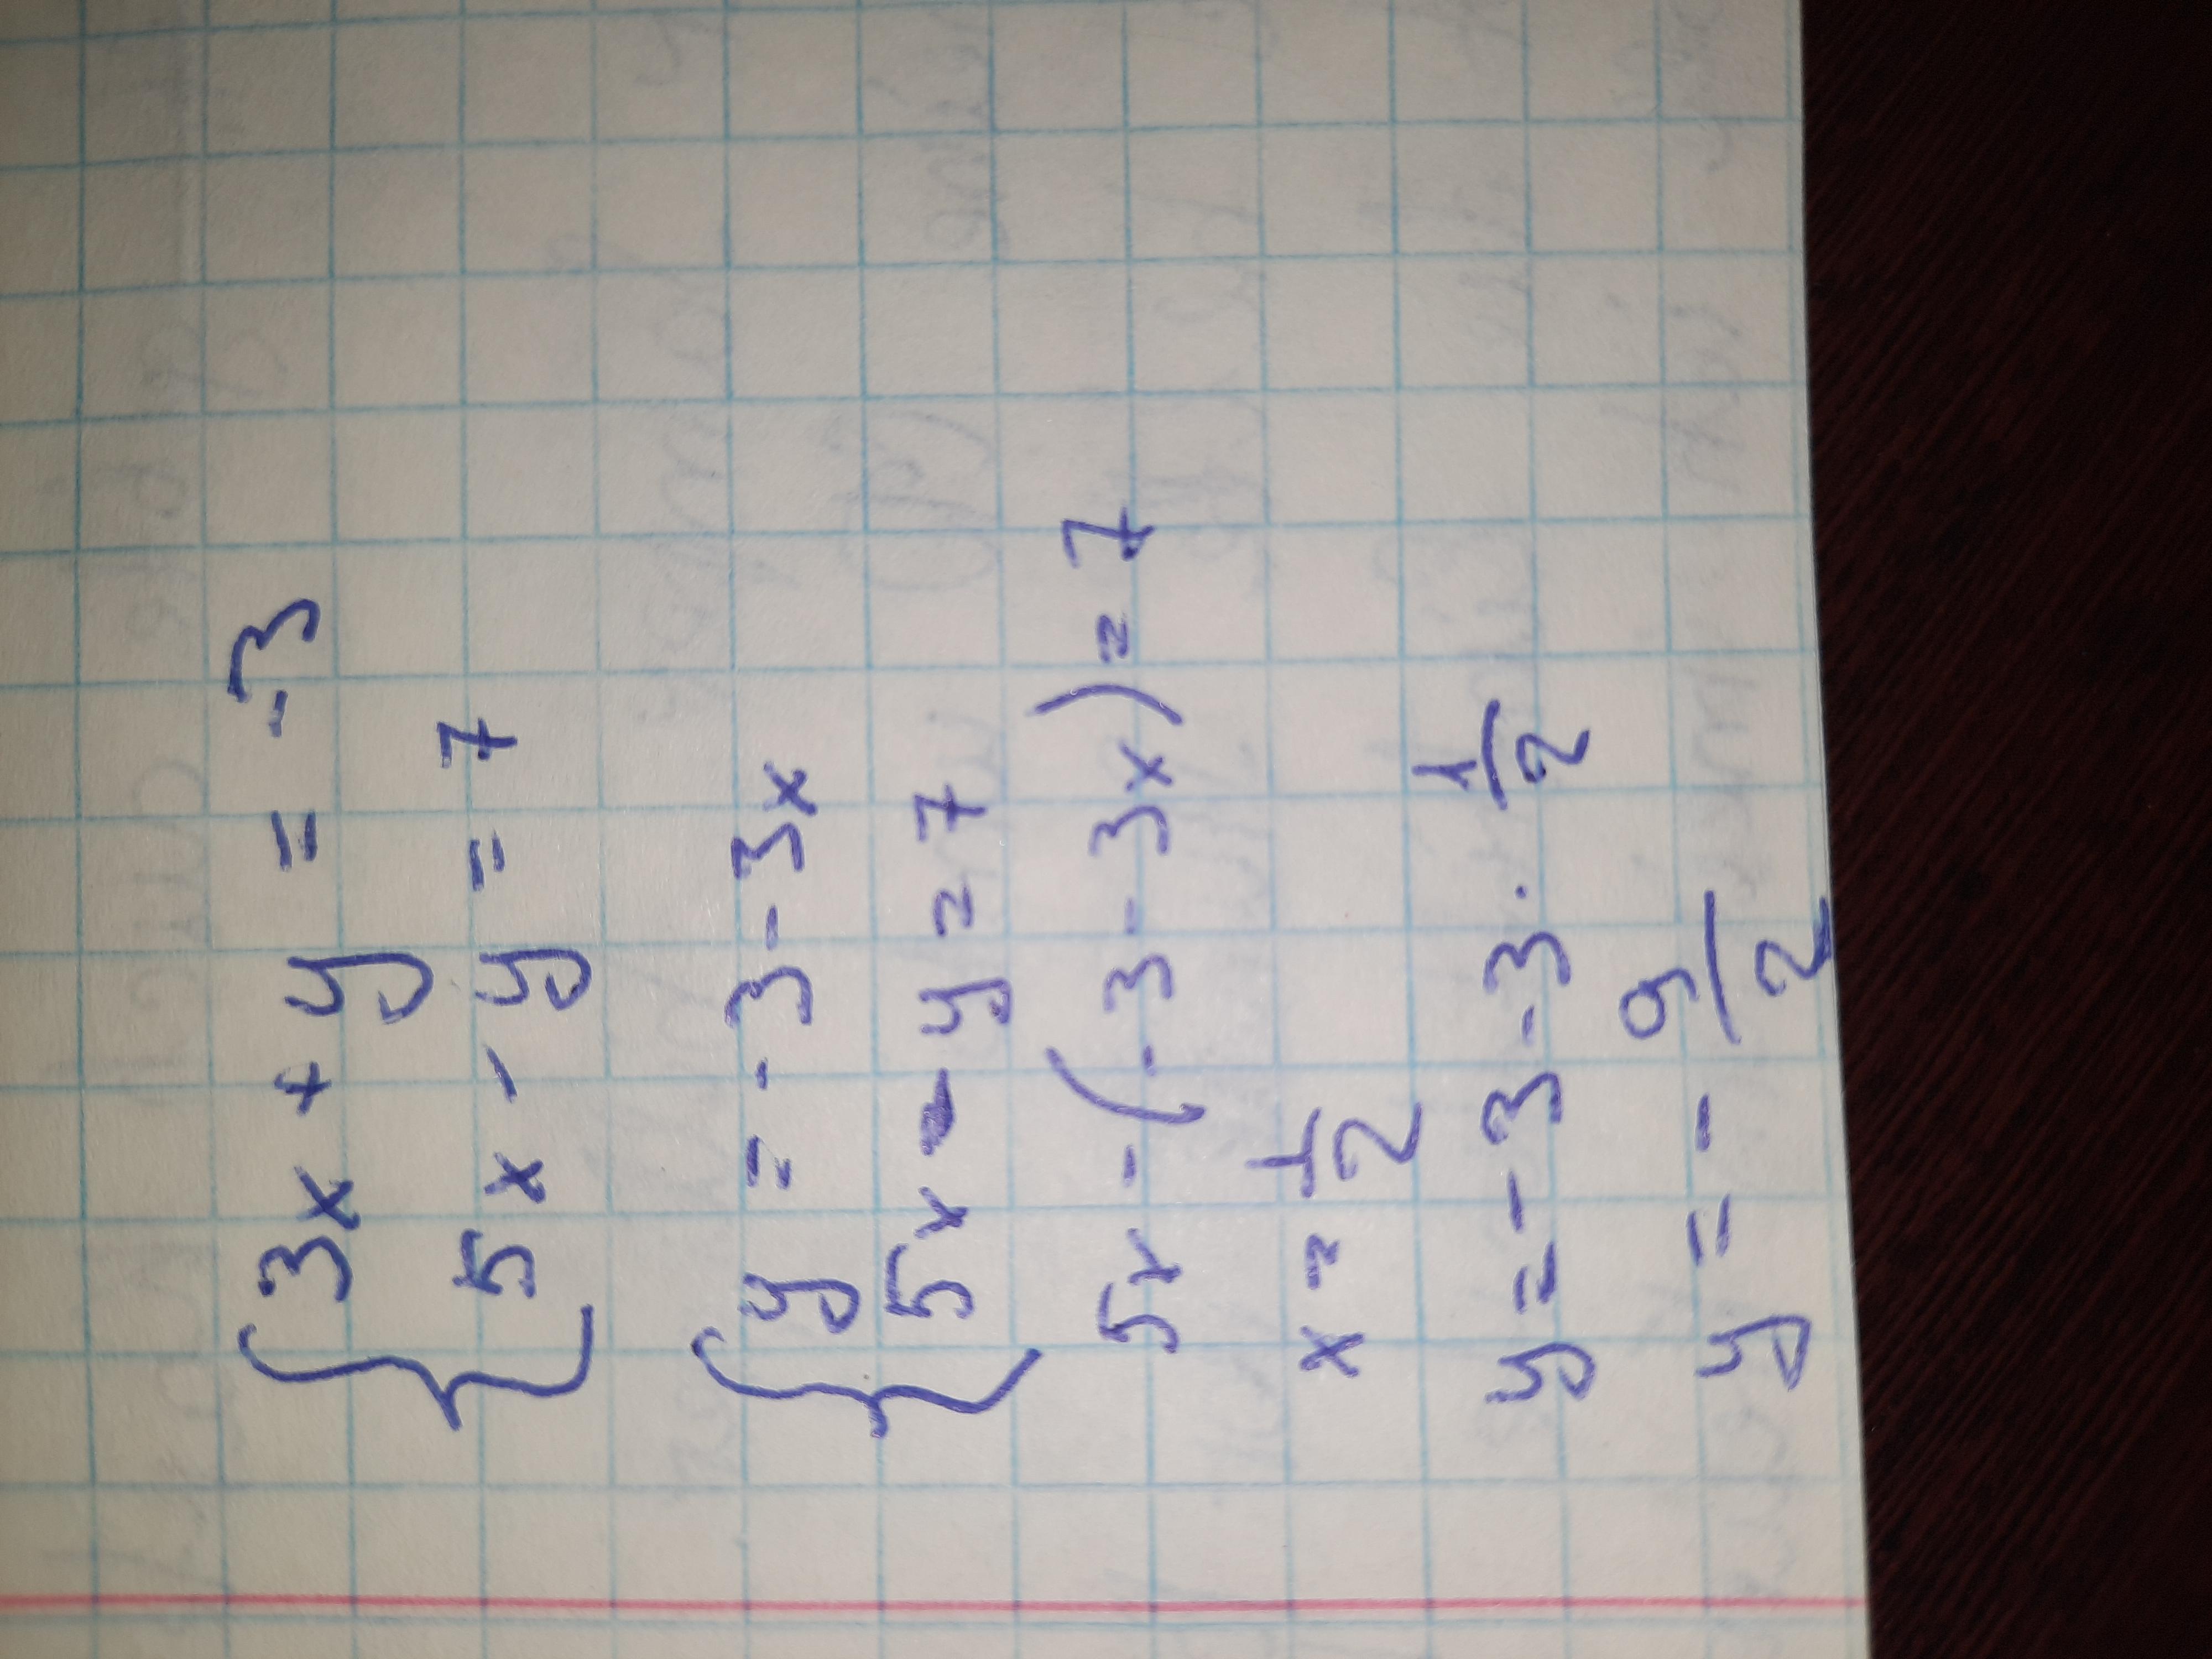 {3x + y = -3
5x - y = 7
{y = -3 - 3x
5x - y = 7
5x - (-3 - 3x) = 7
x = 1/2
y = -3 - 3 · 1/2
y = - 9/2